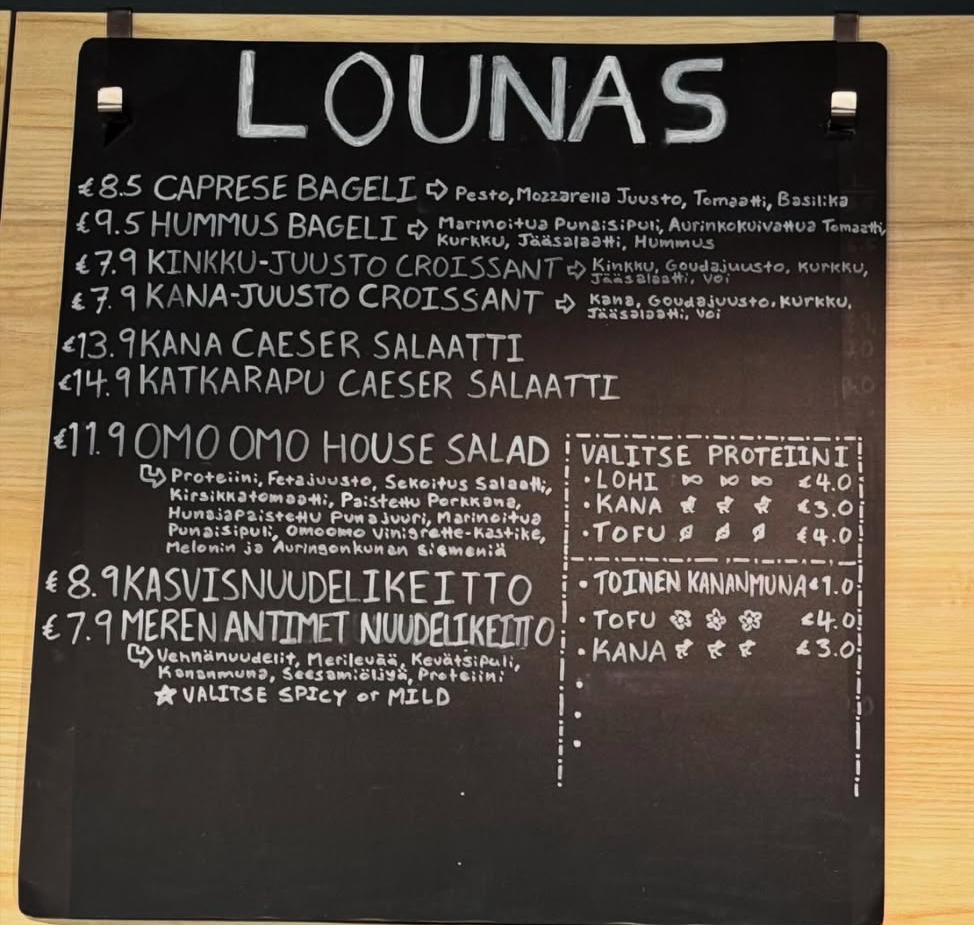 LOUNAS
€8.5 CAPRESE BAGELI ⇨ Pesto, Mozzarella Juusto, Tomaatti, Basilika
€9.5 HUMMUS BAGELI ⇨ Marinoitua Punaisipuli, Aurinkokuivattua Tomaatti,
Kurkku, Jääsalaatti, Hummus
€7.9 KINKKU-JUUSTO CROISSANT ⇨ Kinkku, Goudajuusto, Kurkku,
Jääsalaatti, Voi
€7.9 KANA-JUUSTO CROISSANT ⇨ Kana, Goudajuusto, Kurkku,
Jääsalaatti, Voi
€13.9 KANA CAESER SALAATTI
€14.9 KATKARAPU CAESER SALAATTI
€11.9 OMO OMO HOUSE SALAD
Proteiini, Fetajuusto, Sekoitus Salaatti,
Kirsikkatomaatti, Paistettu Porkkana,
Hunajapaistettu Punajuuri, Marinoitua
Punaisipuli, Omoomo Vinigrette-Kastike,
Melonin ja Auringonkunan siemeniä
€8.9 KASVISNUUDELIKEITTO
€7.9 MEREN ANTIMET NUUDELIKEITTO
Vehnänuudelit, Merilevää, Kevätsipuli,
Kananmuna, Seesamiöljyä, Proteiini
★ VALITSE SPICY or MILD
VALITSE PROTEIINI
• LOHI €4.0
• KANA €3.0
• TOFU €4.0
• TOINEN KANANMUNA €1.0
• TOFU €4.0
• KANA €3.0